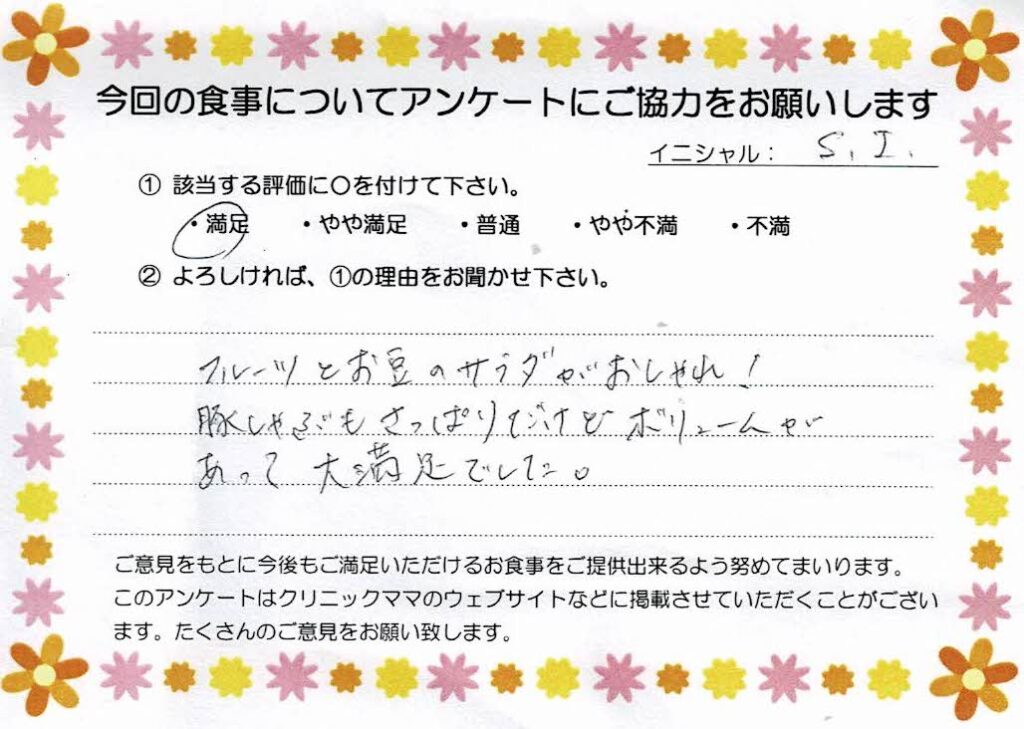 今回の食事についてアンケートにご協力をお願いします
イニシャル： S. I.
① 該当する評価に○を付けて下さい。
・満足 ・やや満足 ・普通 ・やや不満 ・不満
② よろしければ、①の理由をお聞かせ下さい。
フルーツとお豆のサラダがおしゃれ！
豚しゃぶもさっぱりだけどボリュームが
あって大満足でした。
ご意見をもとに今後もご満足いただけるお食事をご提供出来るよう努めてまいります。
このアンケートはクリニックママのウェブサイトなどに掲載させていただくことがござい
ます。たくさんのご意見をお願い致します。